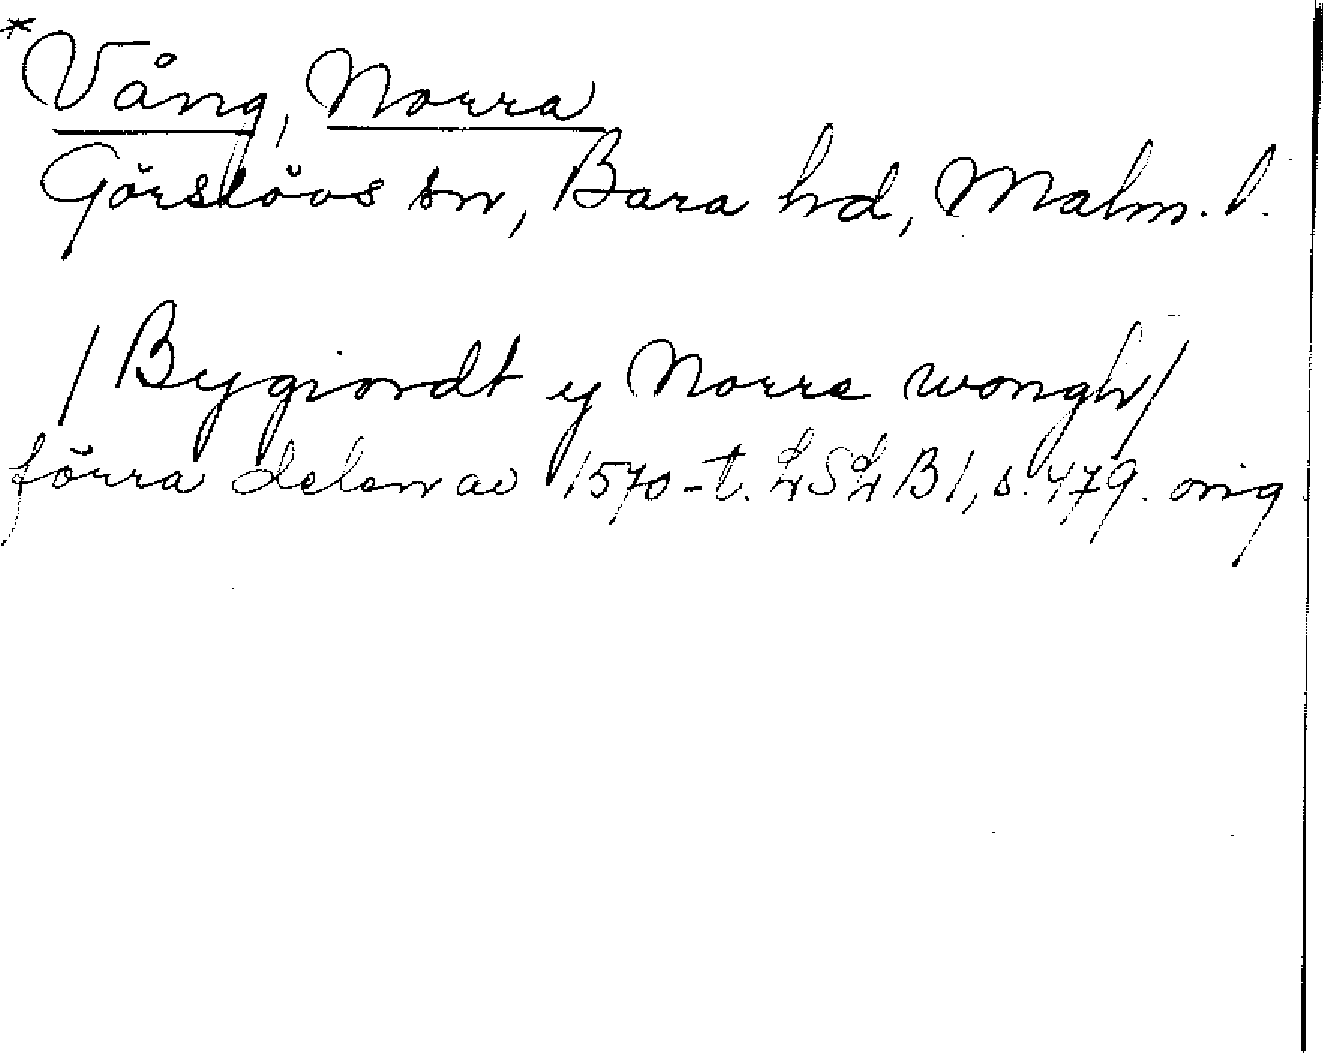 *Vång, Norra
Görslövs sn, Bara hd, Malm. l.
/Bygiordt y Norre wongh/
förra delen av 1570-t. LSLB1, s. 479. orig